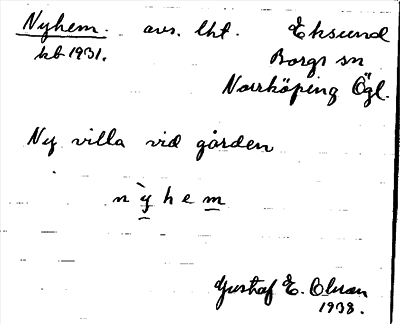 Nyhem. avs. lht. Eksund
kb 1931. Borgs sn
Norrköping Ögl.
Ny villa vid gården
nỳhem
Gustaf E. Olson
1938.